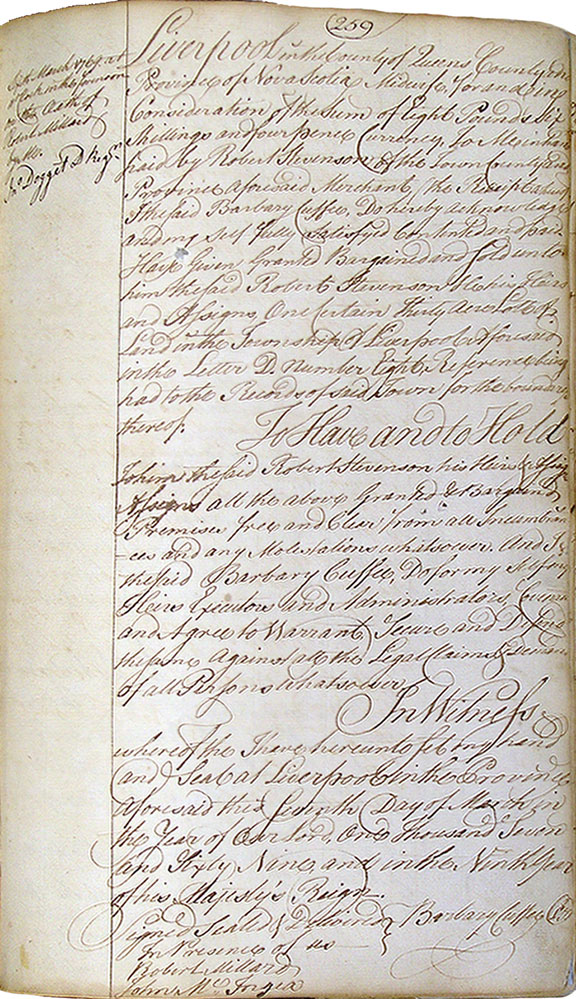 259
March 1769 at
o'Clock in the forenoon
on the Oath of
Robert Millard
by Me.
Jno Dogget D Regr
Liverpool in the County of Queens County and
Province of Nova Scotia Midwife, for and in
Consideration of the Sum of Eight Pounds Six
Shillings and four pence Currency, To Me in hand
paid by Robert Stevenson of the Town County and
Province aforesaid Merchant, the Receipt whereof
I the said Barbary Cuffee, Do hereby acknowledge
and my Self Fully Satisfyed Contented and paid
Have Given, Granted Bargained and Sold unto
him the said Robert Stevenson His Heirs
and Assigns, One Certain thirty Acre Lott of
Land in the Township of Liverpool Aforesaid
in the Letter D. Number Eight, Reference being
had to the Records of said Town for the bounds
thereof. To Have and to Hold
To him the said Robert Stevenson his Heirs &
Assigns all the above Granted & Bargaind
Premises free and Clear from all Incumbran
-ces and any Molestations whatsoever. And I
the said Barbary Cuffee, Do for my Self my
Heirs Executors and Administrators, Covenant
and Agree to Warrant, Secure and Defend
the same Against all the Legal Claims & Demands
of all Persons whatsoever. In Witness
whereof the I have hereunto set my hand
and Seal at Liverpool in the Province
Aforesaid this Seventh Day of March in
the Year of Our Lord, One thousand Seven
and Sixty Nine and in the Ninth Year
of his Majesty's Reign.
Signed Sealed & Delivered } Barbary Cuffee
In Presence of us
Robert Millard
John